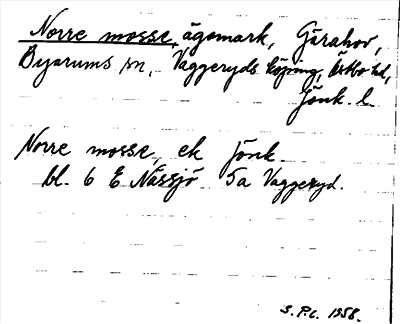 Norre mosse, ägomark, Gärahov,
Byarums sn, Vaggeryds köping, Östbo hd,
Jönk. l.
Norre mosse, ek Jönk.
bl. 6 E Nässjö 5a Vaggeryd.
S.P.C. 1958.